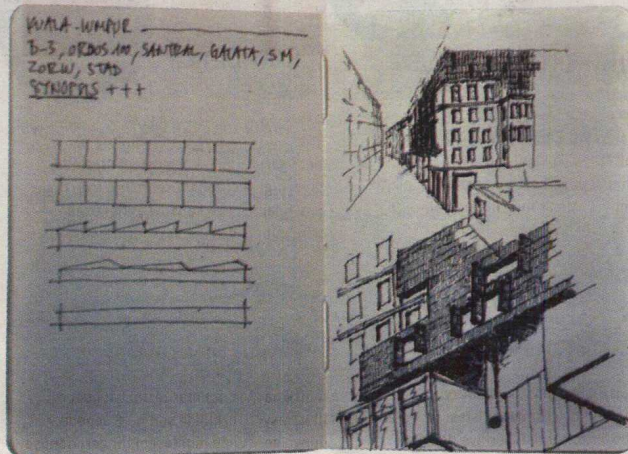 KUALA-LUMPUR
B-3, ORDOS 100, SANTRAL, GALATA, SM,
ZORLU, STAD
SYNOPSIS +++